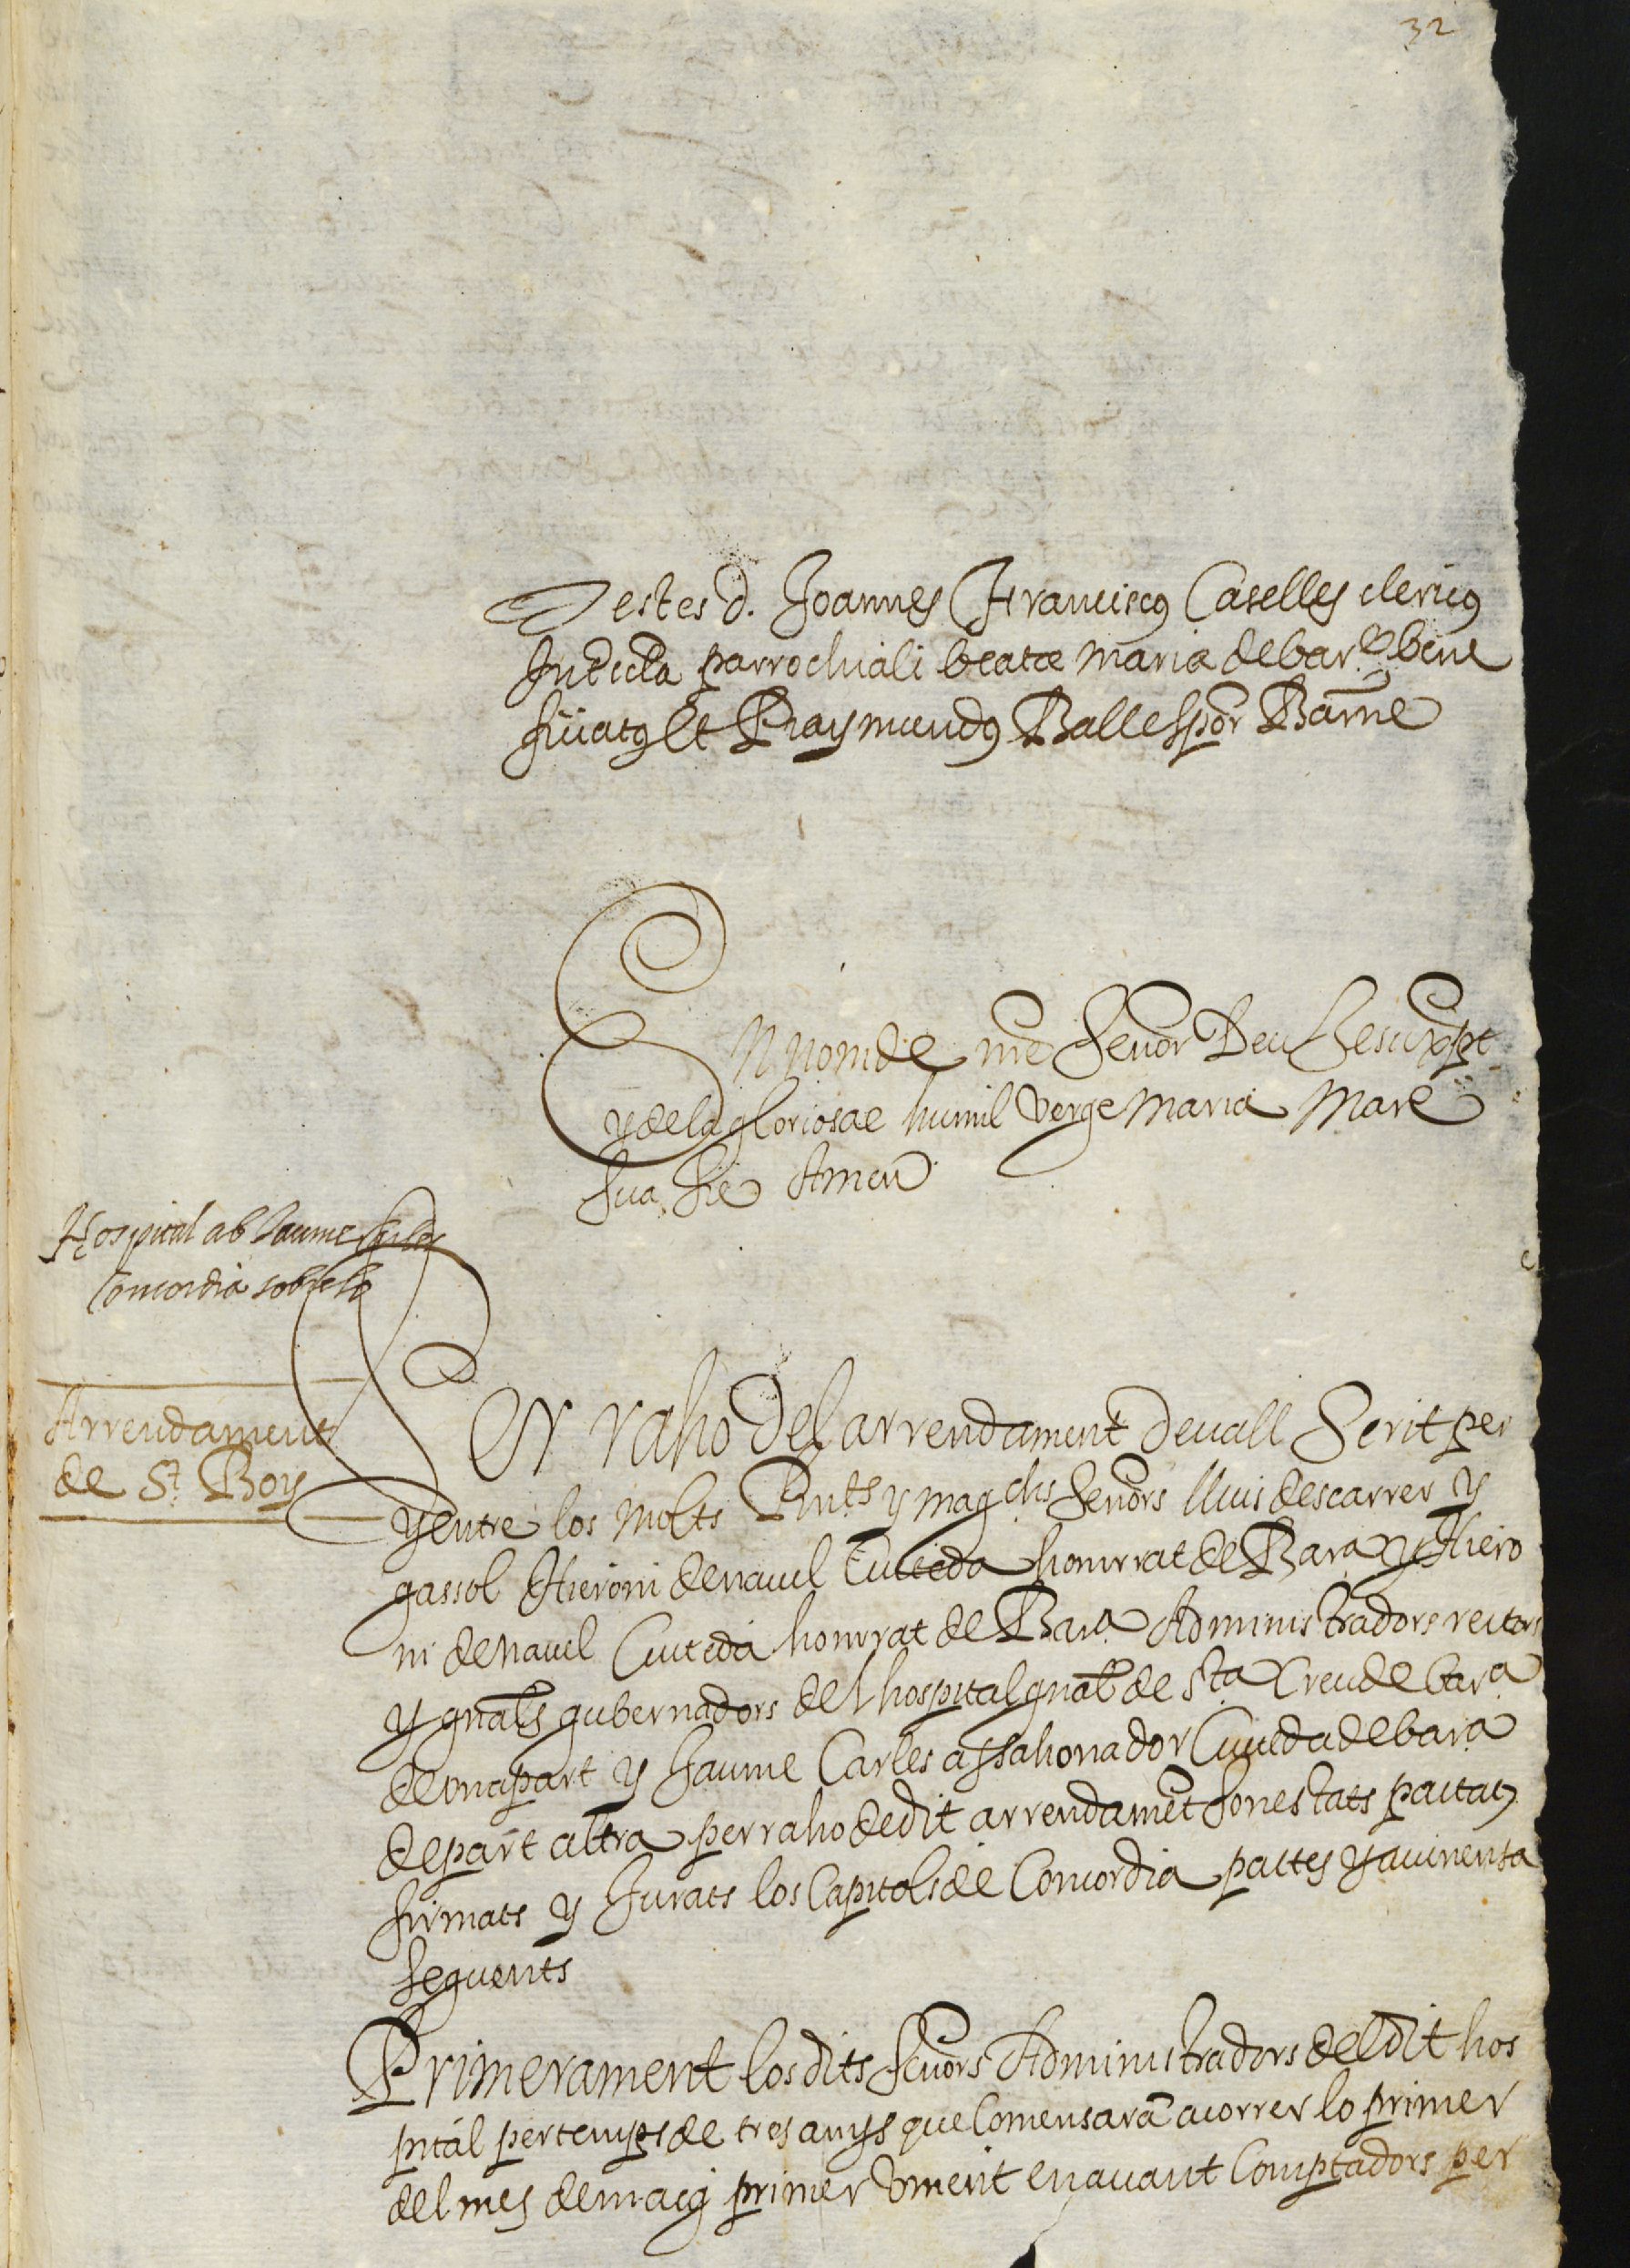 32
Testes d. Joannes Franciscus Caselles clericus
In eccla parrochiali beatæ mariæ de bar.ª bene
ficiatꝯ Et Raymundꝯ Ballesper Barne
EN nom de nr̃e Senor Deu Jesu xp̃t
y de la gloriosa e humil verge Maria Mare
sua Sie Amen
Hospital ab Jaume Carles
Concordia sobre lo
Arrendament
de St. Boy
PEr raho del arrendament devall Scrit per
y entre los Molts Rnts y magchs Senors lluis descarrer y
gassol Hieroni de navel Ciuteda honrrat de Barª y Hiero
ni de navel Ciutedà honrrat de Barª Administradors rectors
y gnāls gubernadors del hospital gnāl de Sta Creu de barª
de una part y Jaume Carles assahonador Ciuteda de barª
de part altra per raho de dit arrendamēt son estats pactats
firmats y Jurats los Capitols de Concordia pactes y avinensa
seguents
Primerament los dits senors Administradors del dit hos
pital per temps de tres anys que Comensarā a correr lo primer
del mes de maig primer vinent en avant Comptadors per